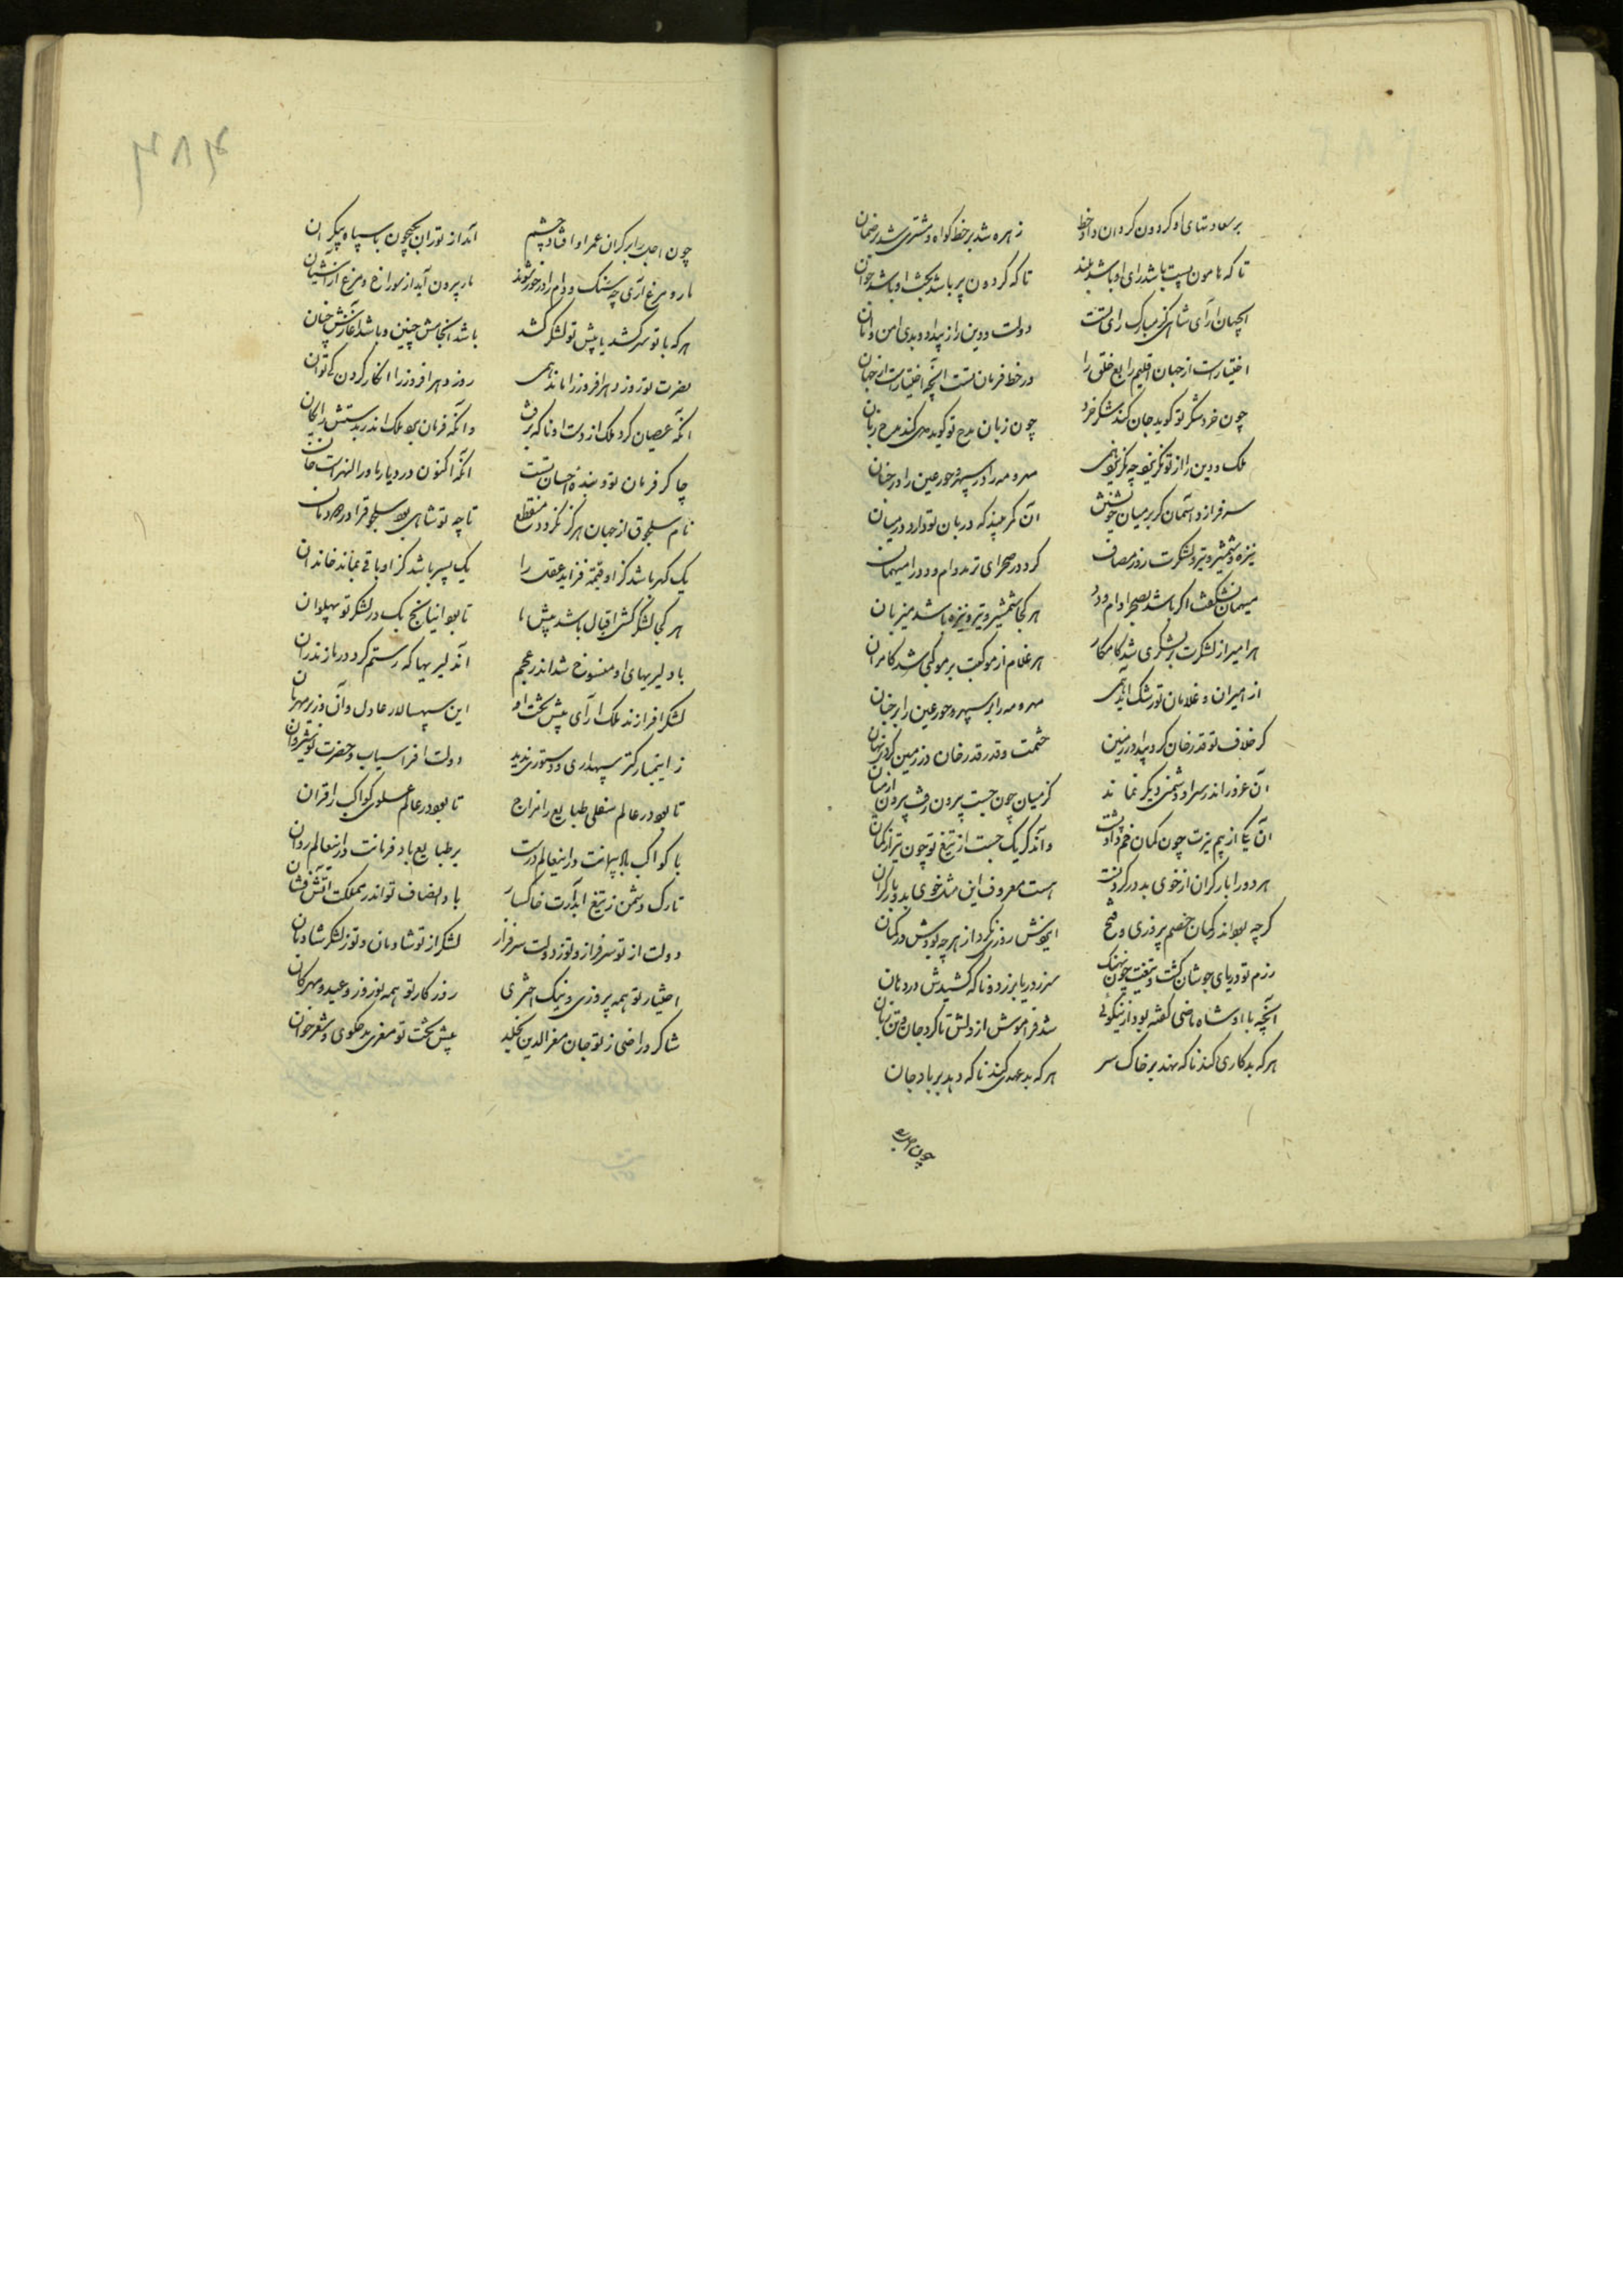 بر سعادتهای او گردون گردان داد خط
زهره شد بر خط گواه و مشتری شد بر ضمان
تا که هامون پست باشد رای او باشد بلند
تا که گردون پیر باشد بخت او باشد جوان
ایجهان آرای شاهی کز مبارک رای تست
دولت و دین را ز بیداد و بدی امن و امان
اختیارست از جهان اقلیم رابع خلق را
در خط فرمان تست آنچه اختیارست از جهان
چون خرد شکر تو گوید جان کند شکر خرد
چون زبان مدح تو گوید دل کند مدح زبان
ملک و دین را از تو نگزیرد چه نگزیرد همی
مهر و مه را در سپهر و حور عین را در جنان
سرفرازد آسمان گر بر میان خویشتن
آن کمر بیند که دربان تو دارد در میان
نیزه و شمشیر و تیر و لشکرت روز مصاف
کرد در صحرای ترمد دام و دد را میهمان
میهمان نشگفت اگر باشد بصحرا دام و دد
هر کجا شمشیر و تیر و نیزه باشد میزبان
هر امیر از لشکرت بر لشکری شد کامکار
هر غلام از موکبت بر موکبی شد کامران
از امیران و غلامان تو رشک آید همی
مهر و مه را بر سپهر و حور عین را بر جنان
گر خلاف تو قدرخان کرد پیدا در زمین
حشمت و قدر قدرخان در زمین کردی نهان
آن غرور اندر سر او دشمنی دیگر نماند
کز میان چون جست بیرون رفت بیرون از میان
آن یکی از بیم تیرت چون کمان خم داد پشت
و آن دگر یک جست از تیغ تو چون تیر از کمان
هر دو را بار گران از خوی بد در گردنست
هست معروف این مثل خوی بد و بار گران
گرچه بود اندر گمان خصم پیروزی و فتح
ایچ روزش نکرد از هر چه بودش در گمان
رزم تو دریای جوشان گشت و تیغت چون نهنگ
سر ز دریا بر زد و ناگه کشیدش در دهان
آنچه با او شاه ماضی گفته بود از نیکوئی
شد فراموش از دلش تا کرد جان و تن زیان
هر که بدکاری کند ناگه نهد بر خاک سر
هر که بدعهدی کند ناگه دهد بر باد جان
چون اجل
۳۸۴
چون اجل را بر کران عمر او افتاد چشم
آمد از توران بجیحون با سپاه بیکران
مار و مرغ آری چو سنگ و دام را در خور شوند
مار بیرون آید از سوراخ و مرغ از آشیان
هر که با تو سر کشد یا پیش تو لشکر کشد
باشد انجامش چنین و باشد آغازش چنان
نصرت تو روز دهر افروز را ماند همی
روز دهر افروز را انکار کردن کی توان
آنکه عصیان کرد ملک از دست او ناگه برفت
وانکه فرمان برد ملک اندر بدستش رایگان
چاکر فرمان تو و بنده احسان تست
آنکه اکنون در دیار ماوراالنهرست خان
نام سلجوق از جهان هرگز نگردد منقطع
تا چو تو شاهی بود سلجوق را در دودمان
یک گهر باشد کز او قیمت فزاید عقد را
یک پسر باشد کز او باقی بماند خاندان
هر کجا لشکر کشی اقبال باشد پیش ما
تا بود اینانج بک در لشکر تو پهلوان
با دلیریهای او منسوخ شد اندر عجم
آن دلیریها که رستم کرد در مازندران
لشکر افرازند ملک آرای پیش تخت او
این سپهسالار عادل وان وزیر مهربان
ز اینچنین کمتر سپهداری و دستوری ندید
دولت افراسیاب و حضرت نوشیروان
تا بود در عالم سفلی طبایع را مزاج
تا بود در عالم علوی کواکب را قران
با کواکب باد پیمانت در آن عالم درست
بر طبایع باد فرمانت در این عالم روان
تارک دشمن ز تیغ آبدارت خاکسار
باد انصاف تو اندر مملکت آتش فشان
دولت از تو سرفراز و تو ز دولت سرفراز
لشکر از تو شادمان و تو ز لشکر شادمان
اختیار تو همه پیروزی و نیک اختری
روزگار تو همه نوروز و عید و مهرگان
شاکر و راضی ز تو جان معزالدین بخلد
پیش تخت تو معزی مدح گوی و شعر خوان